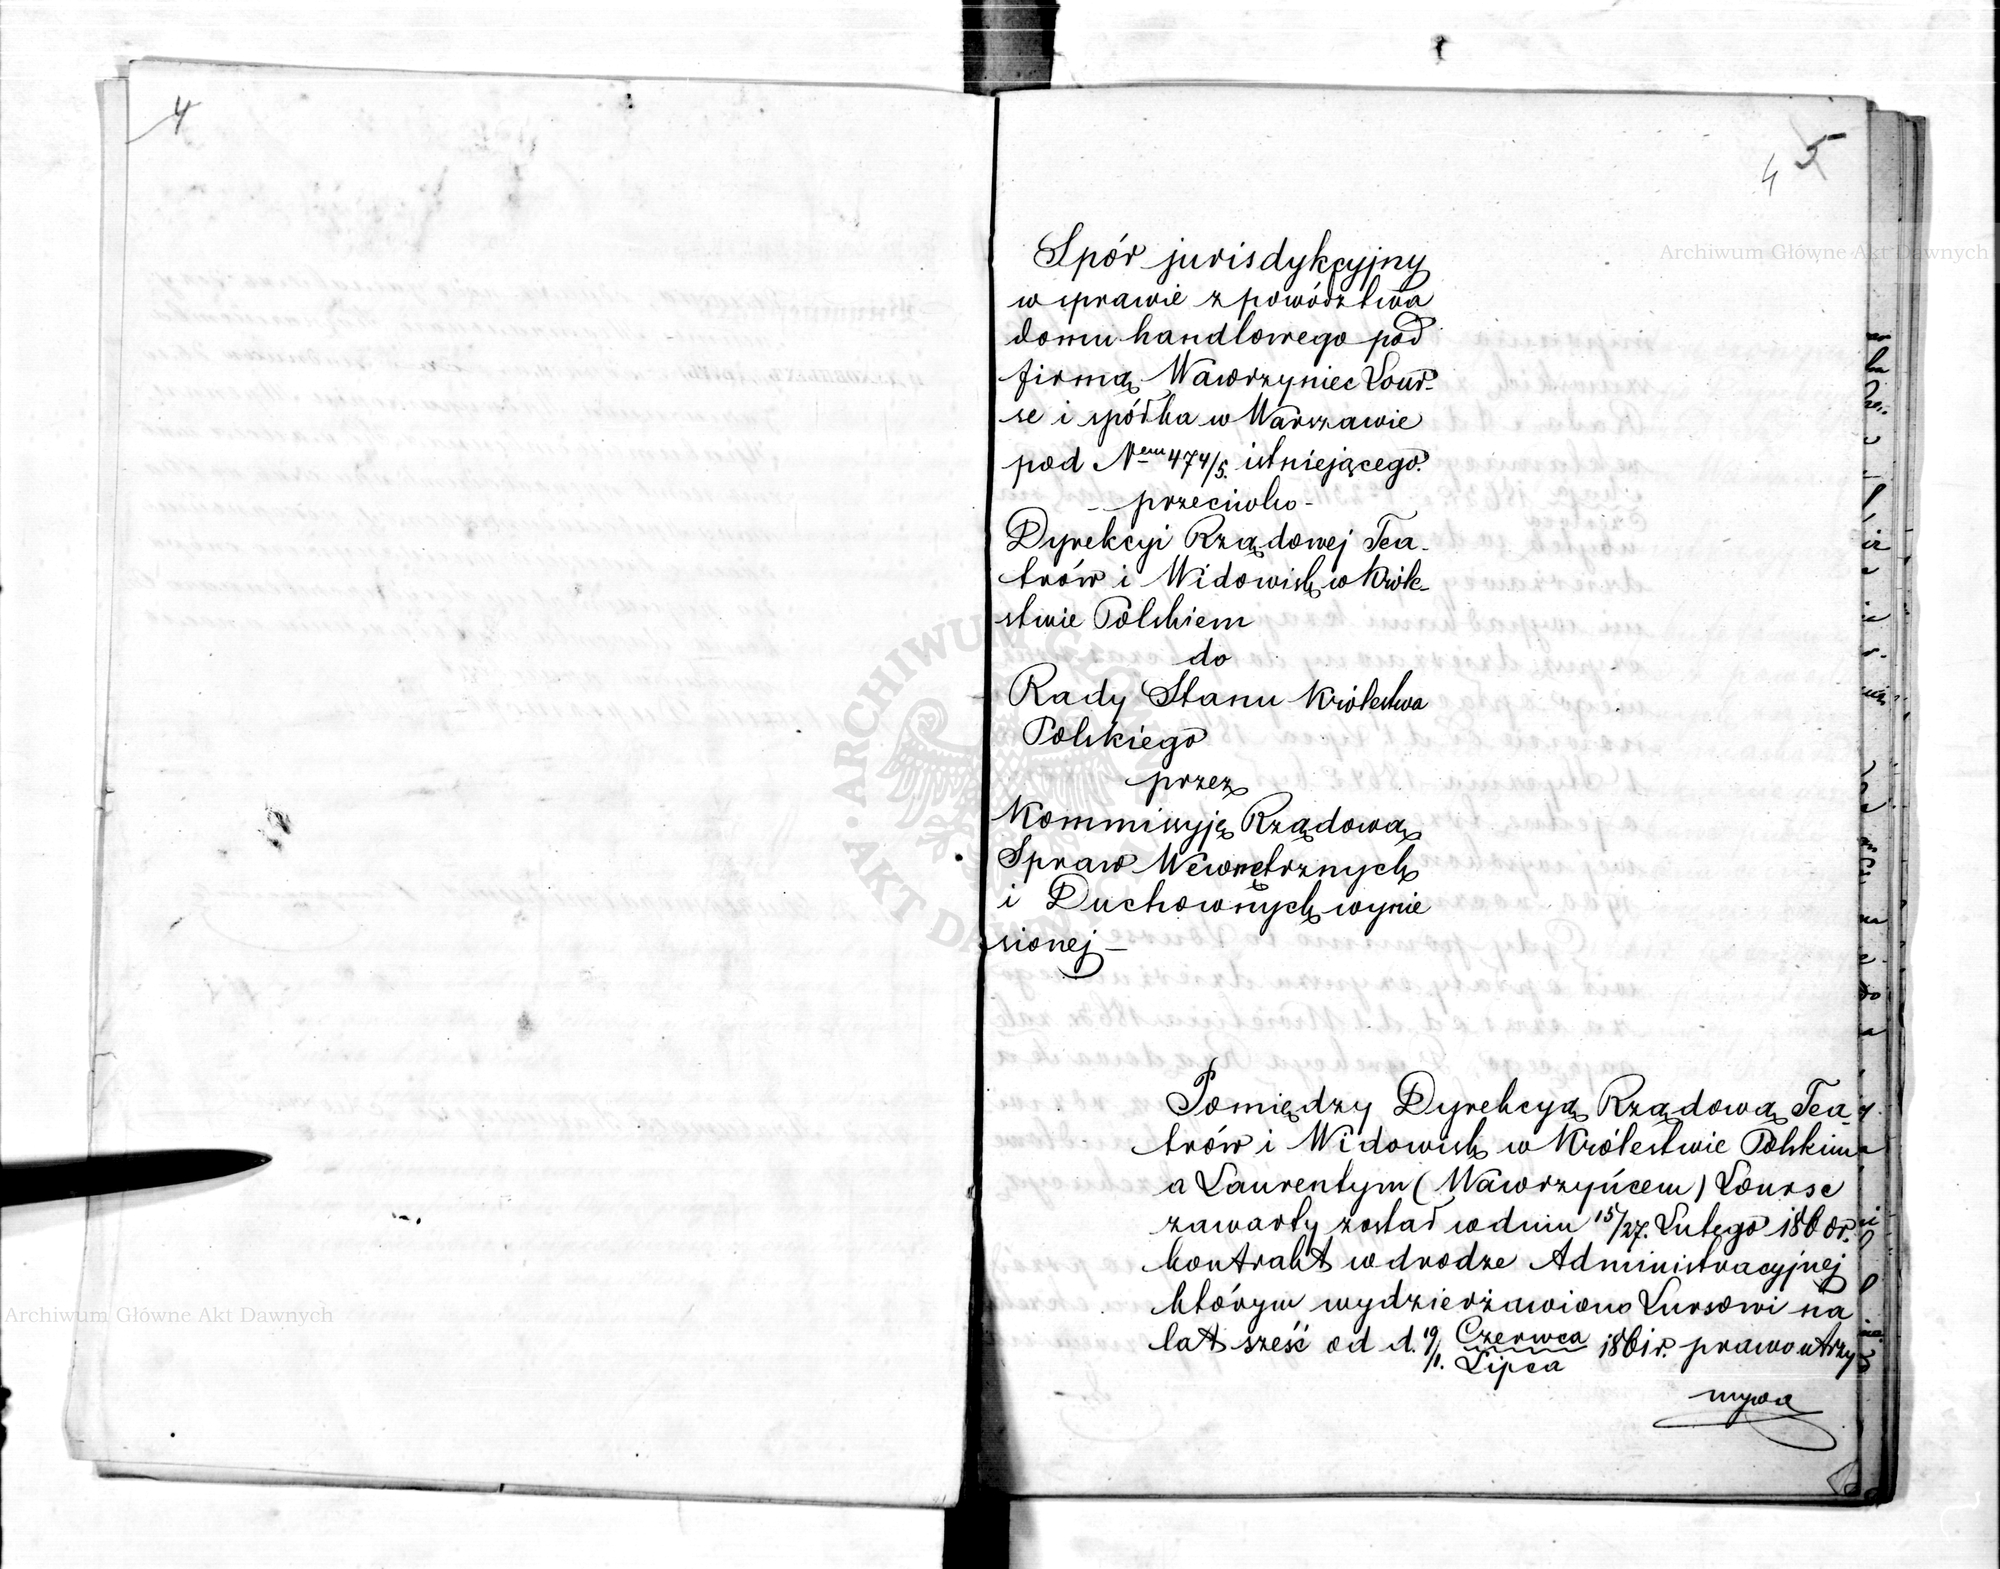 4
4 5
Spór jurisdykcyjny
w sprawie z powództwa
domu handlowego pod
firmą Wawrzyniec Lour-
se i spółka w Warszawie
pod Nem 474/5. istniejącego.
- przeciwko -
Dyrekcyi Rządowej Tea-
trów i Widowisk w Króle-
stwie Polskiem
do
Rady Stanu Królestwa
Polskiego
przez
Kommissyję Rządową
Spraw Wewnętrznych
i Duchownych wynie
sionej —
Pomiędzy Dyrekcyą Rządową Tea
trów i Widowisk w Królestwie Polskiem
a Laurentym (Wawrzyńcem) Lourse
zawarty został w dniu 15/27. Lutego 1860r.
kontrakt w drodze Administracyjnej
którym wydzierżawiono Lursowi na
lat sześć od d. 19/1. Czerwca/Lipca 1861r. prawo utrzy
mywa
Archiwum Główne Akt Dawnych
Archiwum Główne Akt Dawnych